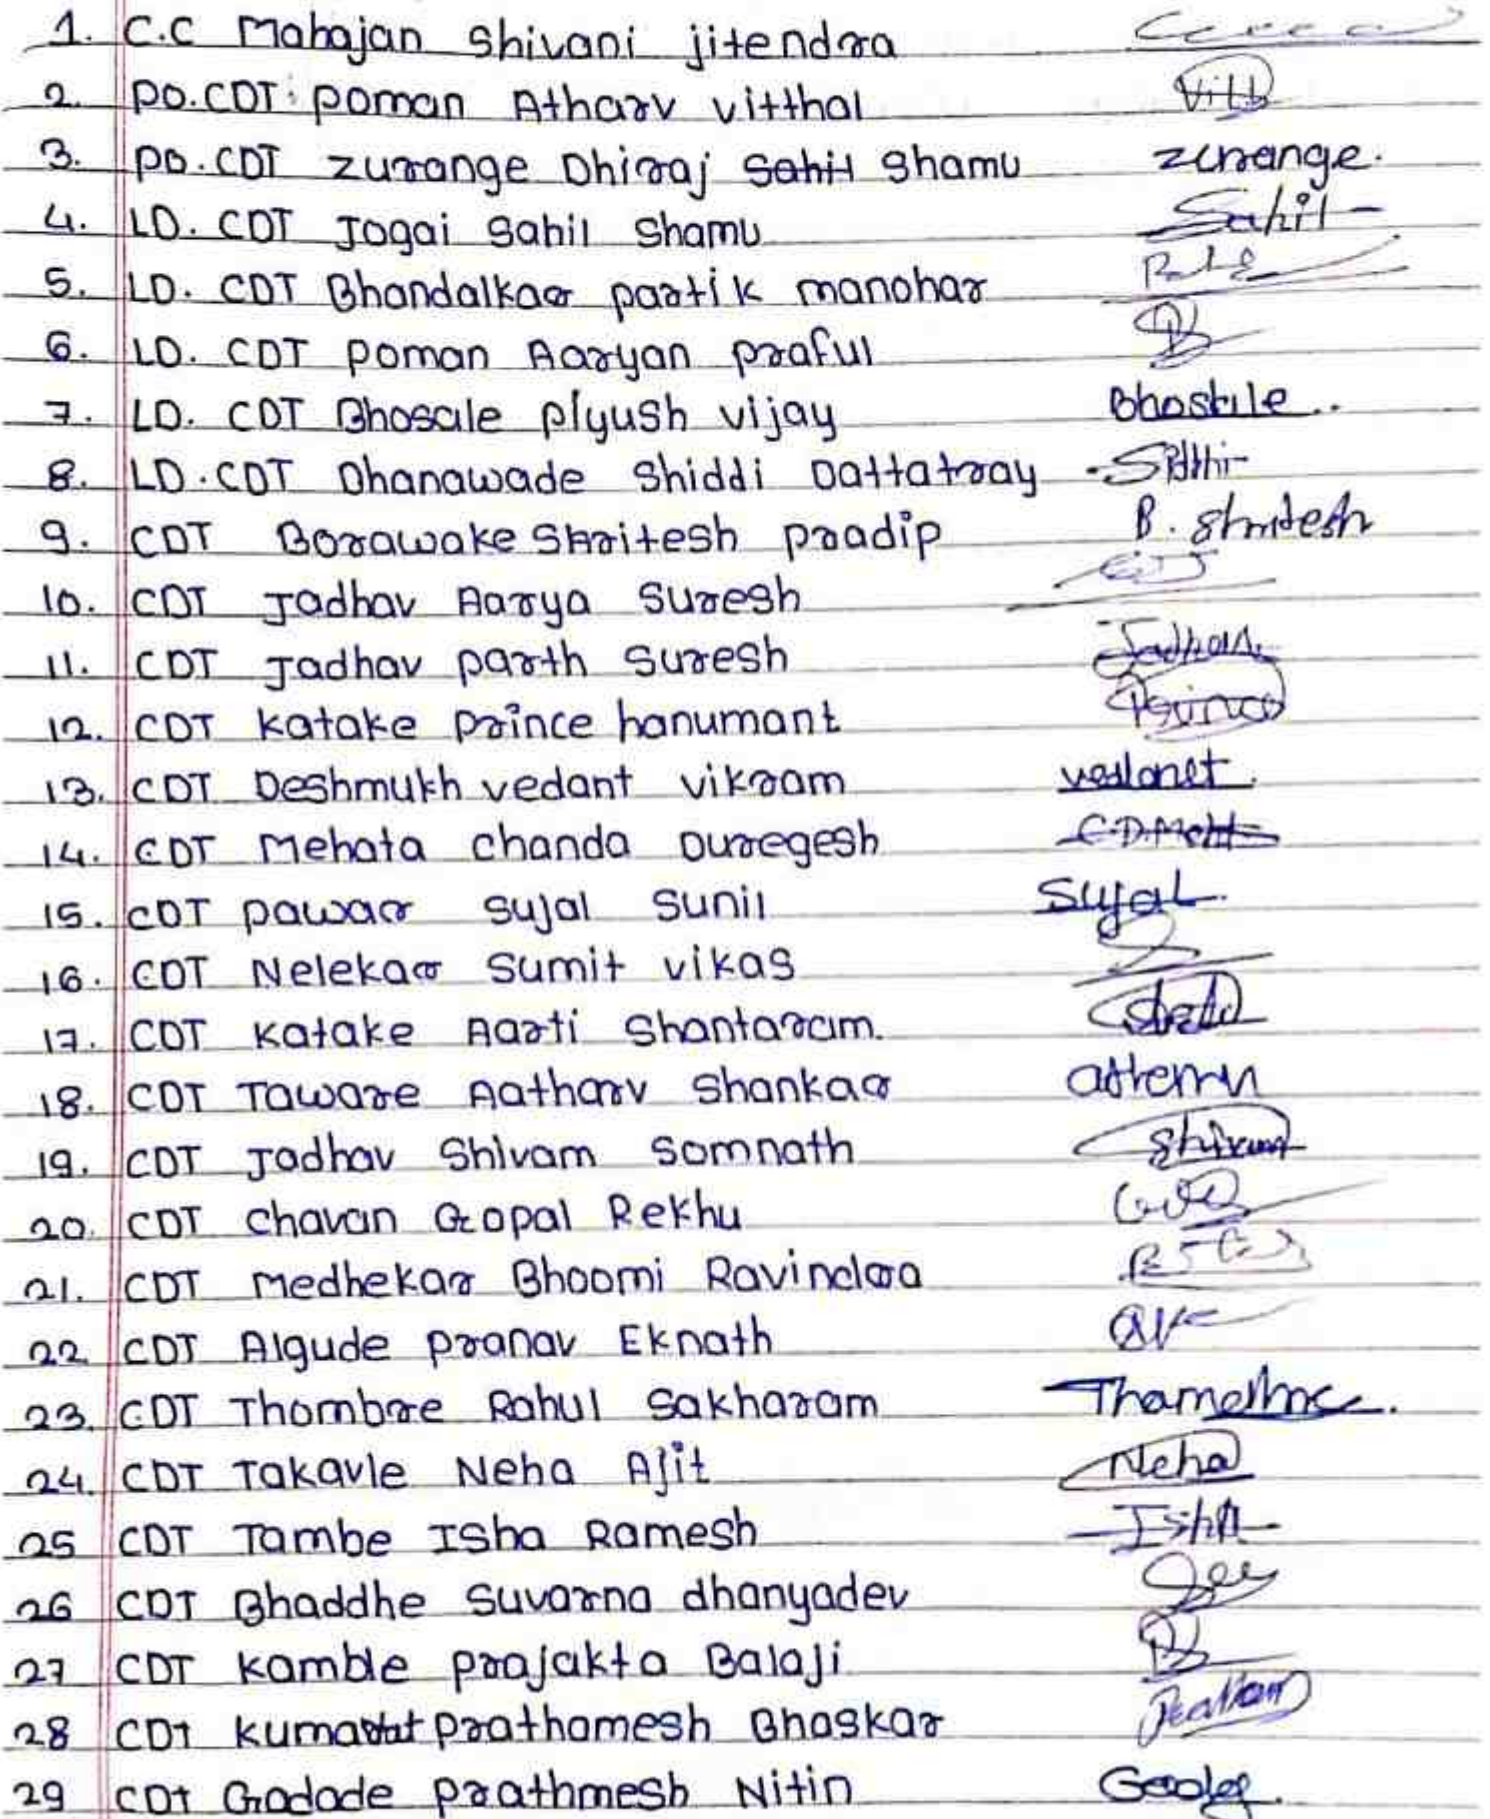 1. C.C Mahajan Shivani jitendra
2. PO.CDT: Poman Atharv vitthal Vitth
3. PO.CDT Zurange Dhiraj Sahil Shamu zurange.
4. LD. CDT Jogai Sahil Shamu Sahil
5. LD. CDT Bhandalkar partik manohar
6. LD. CDT Poman Aaryan praful
7. LD. CDT Bhosale piyush vijay Bhosale..
8. LD.CDT Dhanawade Shiddi Dattatray
9. CDT Borawake Shritesh pradip B. Shritesh
10. CDT Jadhav Aarya Suresh
11. CDT Jadhav parth Suresh Jadhav
12. CDT Katake prince hanumant Prince
13. CDT Deshmukh vedant vikram vedant.
14. CDT Mehata Chanda Duregesh
15. CDT pawar Sujal Sunil Sujal.
16. CDT Nelekar Sumit vikas
17. CDT Katake Aarti Shantaram.
18. CDT Taware Aatharv Shankar
19. CDT Jadhav Shivam Somnath Shivam
20. CDT Chavan Gopal Rekhu
21. CDT Medhekar Bhoomi Ravindra
22. CDT Algude Pranav Eknath
23. CDT Thombre Rahul Sakharam
24. CDT Takavle Neha Ajit Neha
25 CDT Tambe Isha Ramesh Isha
26 CDT Bhaddhe Suvarna dhanyadev
27 CDT Kamble prajakta Balaji
28 CDT Prathamesh Bhaskar
29 CDT Gadade Prathmesh Nitin